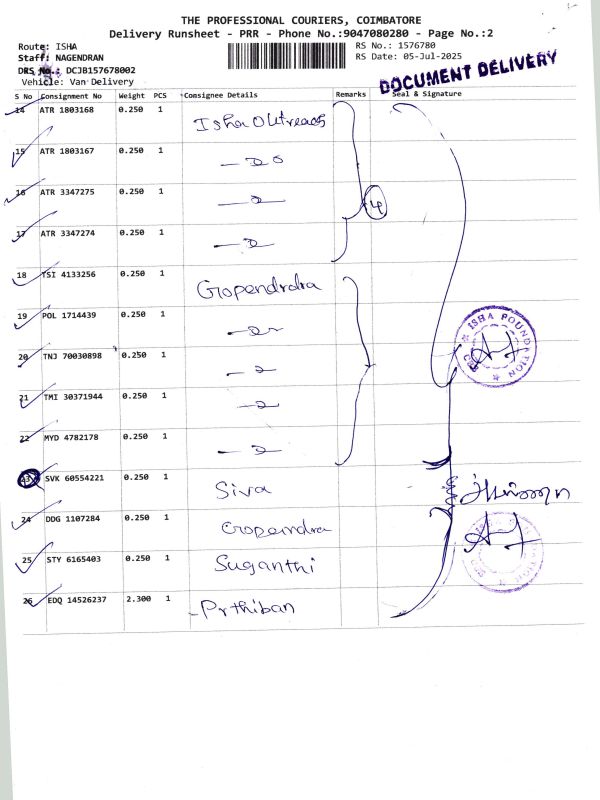 THE PROFESSIONAL COURIERS, COIMBATORE
Delivery Runsheet - PRR - Phone No.:9047080280 - Page No.:2
Route: ISHA
RS No.: 1576780
Staff: NAGENDRAN
RS Date: 05-Jul-2025
DRS No.: DCJB157678002
Vehicle: Van Delivery
DOCUMENT DELIVERY
S No Consignment No Weight PCS Consignee Details Remarks Seal & Signature
14 ATR 1803168 0.250 1 Isha Outreach
15 ATR 1803167 0.250 1 — Do
16 ATR 3347275 0.250 1
4
17 ATR 3347274 0.250 1
18 TSI 4133256 0.250 1 Gopendrdra
19 POL 1714439 0.250 1
ISHA FOUNDATION
20 TNJ 70030898 0.250 1
21 TMI 30371944 0.250 1
22 MYD 4782178 0.250 1
23 SVK 60554221 0.250 1 Siva
24 DDG 1107284 0.250 1 Gopendra
25 STY 6165403 0.250 1 Suganthi
26 EDQ 14526237 2.300 1 Prthiban